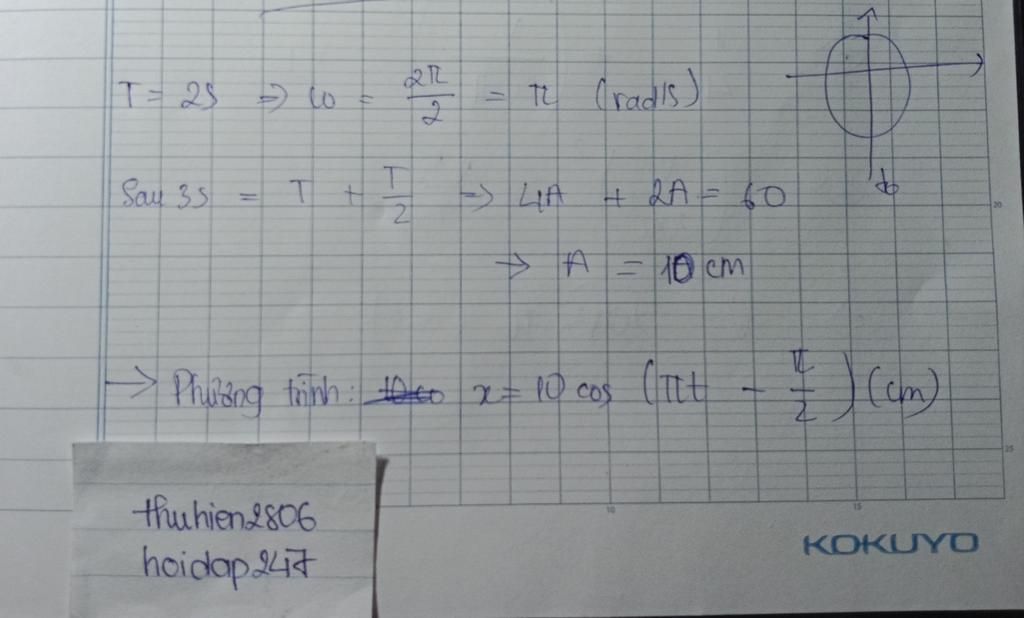 T = 2s => ω = 2π/2 = π (rad/s)
Sau 3s = T + T/2 => 4A + 2A = 60
→ A = 10 cm
→ Phương trình: x = 10 cos (πt - π/2) (cm)
thuhien2806
hoidap247
KOKUYO
20
25
10
15